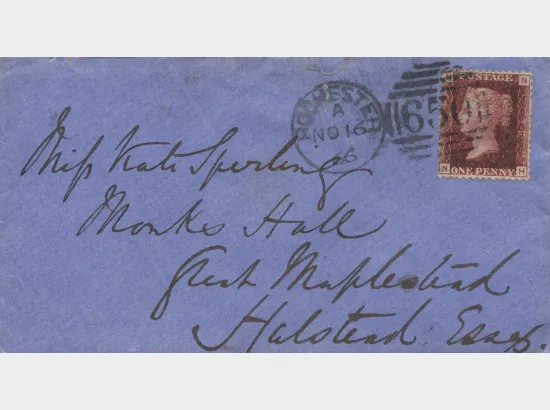 POSTAGE
ROCHESTER
A
NO 16
66
650
M N
N M
ONE PENNY
Miss Kate Sperling
Monks Hall
Great Maplestead
Halstead Essex.